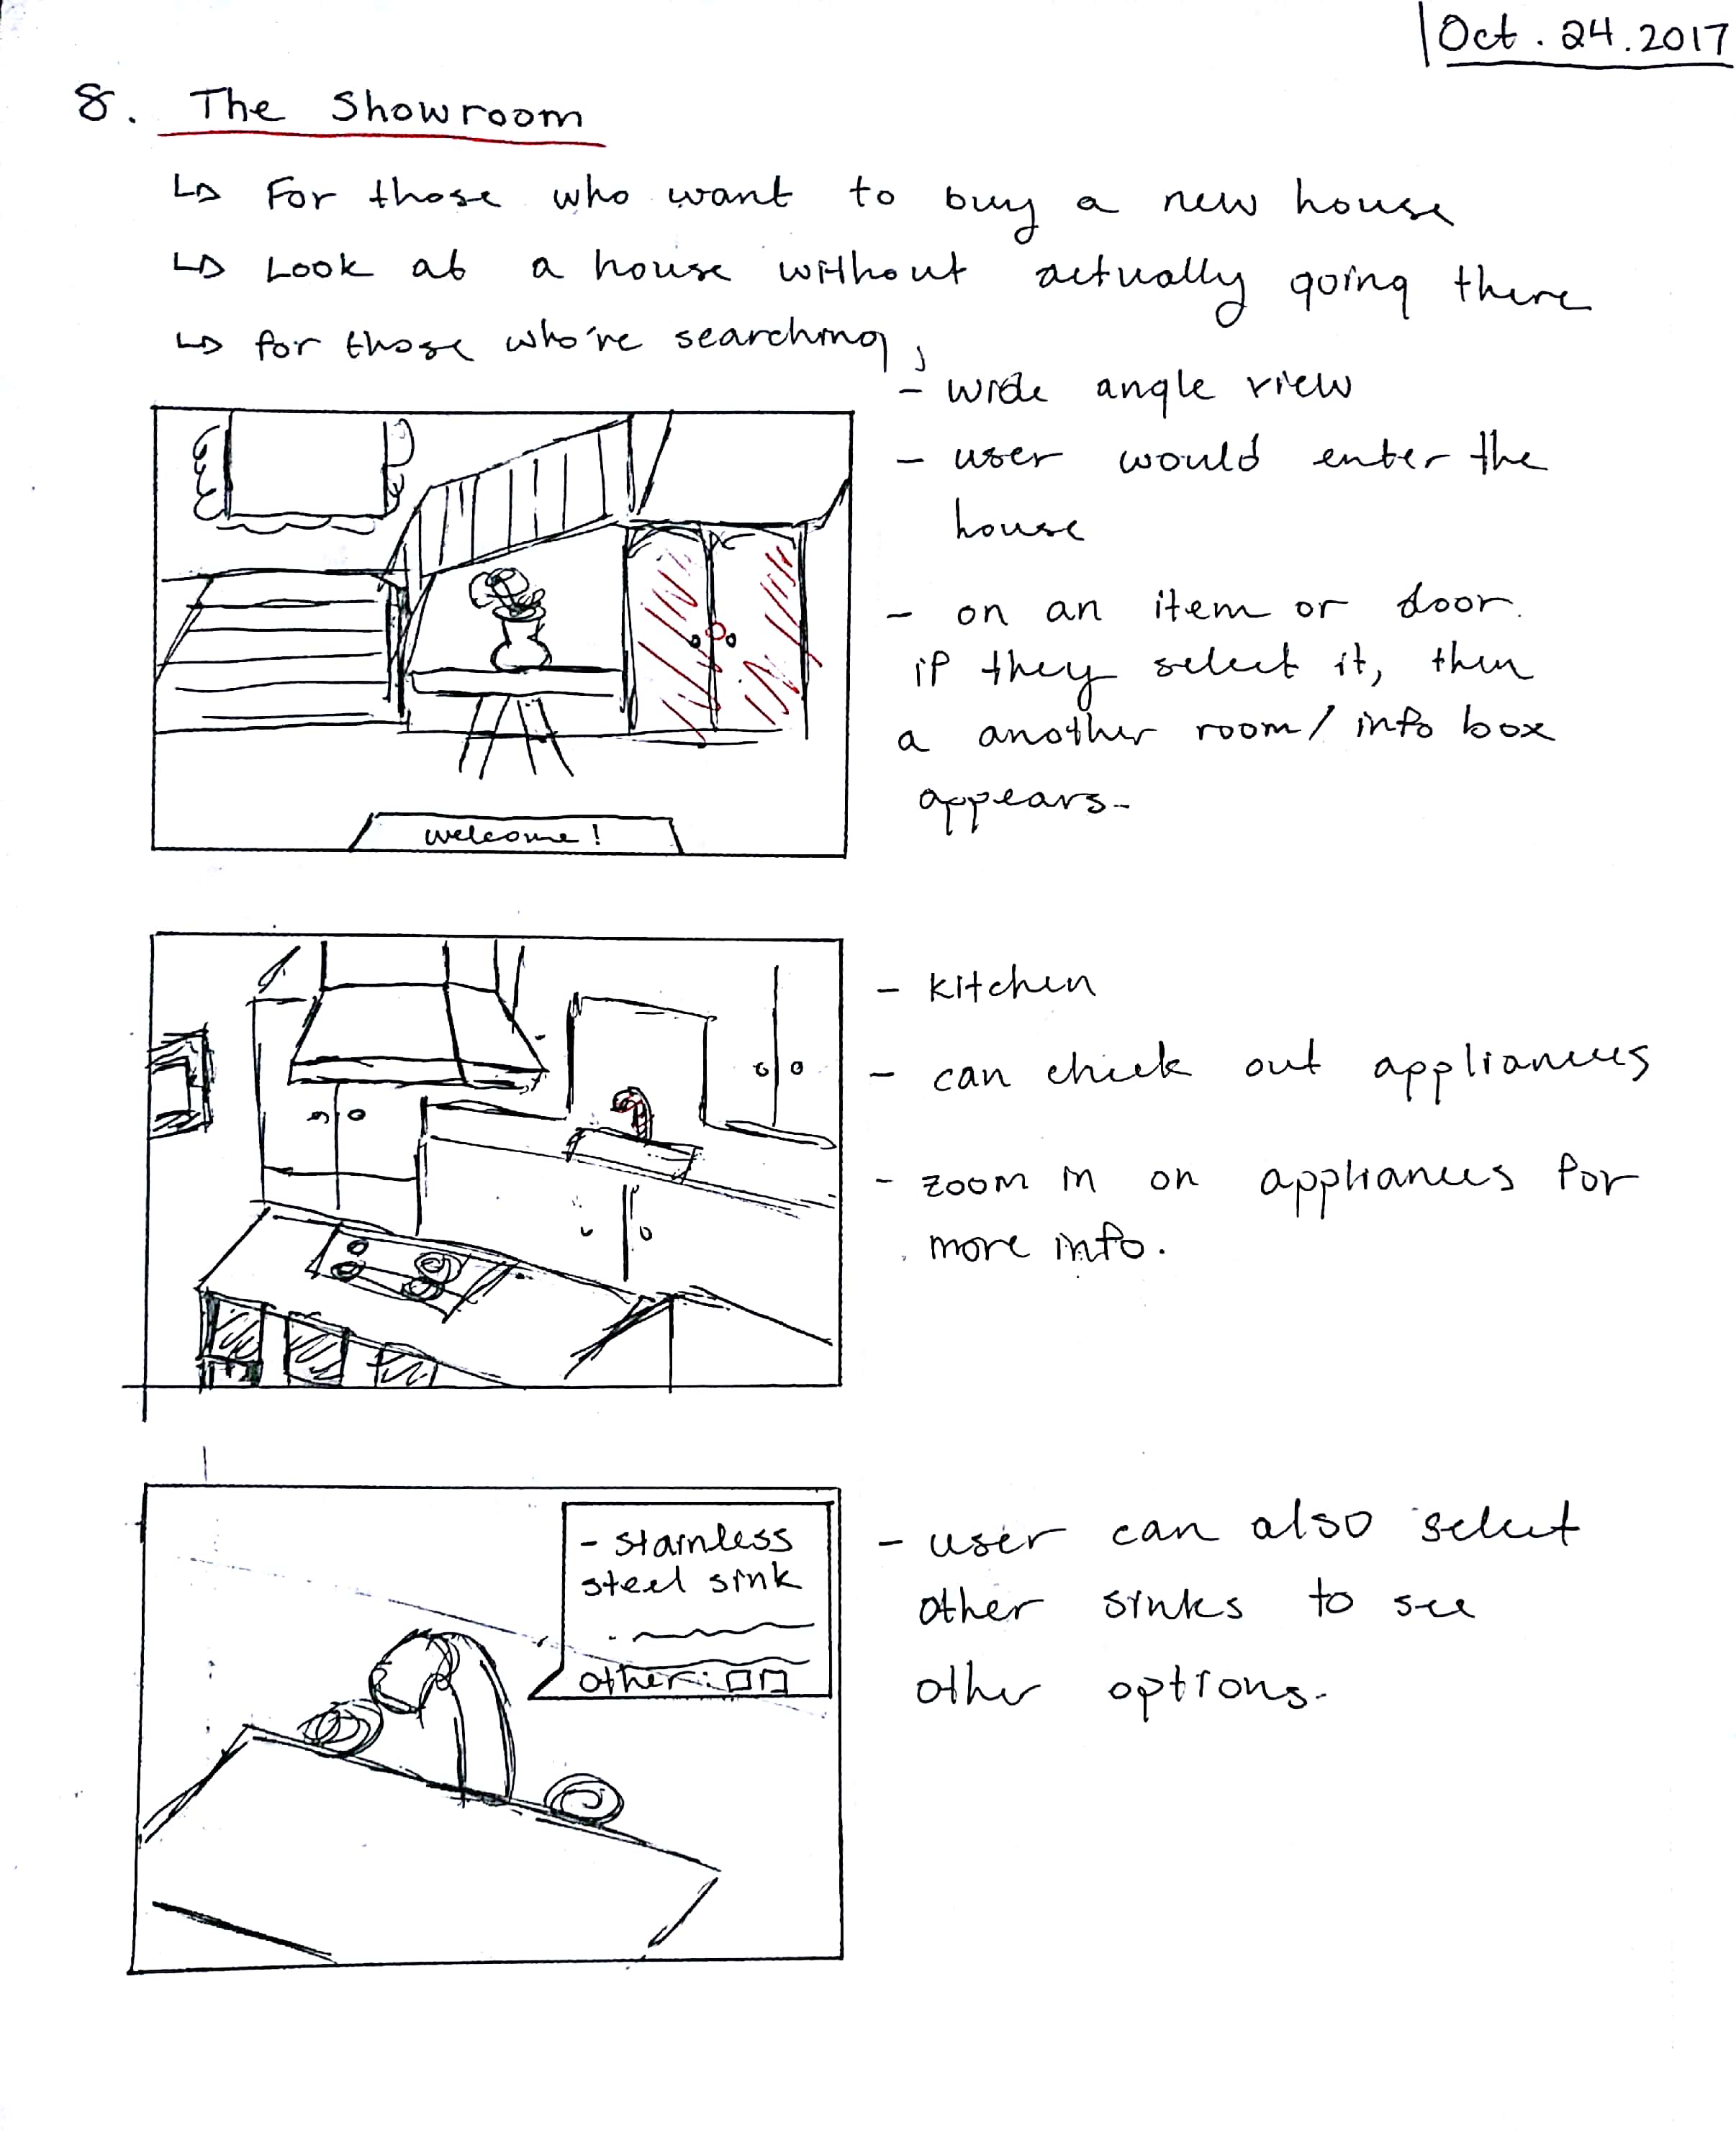 Oct. 24. 2017
8. The Showroom
↳ For those who want to buy a new house
↳ Look at a house without actually going there
↳ for those who're searching
- wide angle view
- user would enter the
house
- on an item or door.
if they select it, then
a another room / info box
appears.
welcome!
- kitchen
- can check out appliances
- zoom in on appliances for
more info.
- stainless
steel sink
other: □□
- user can also select
other sinks to see
other options.